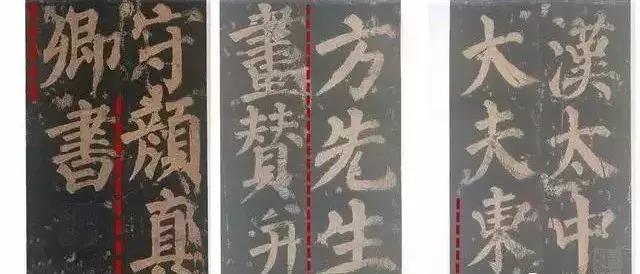 漢太中
大夫東
方先生
畫贊并
守顏真
卿書